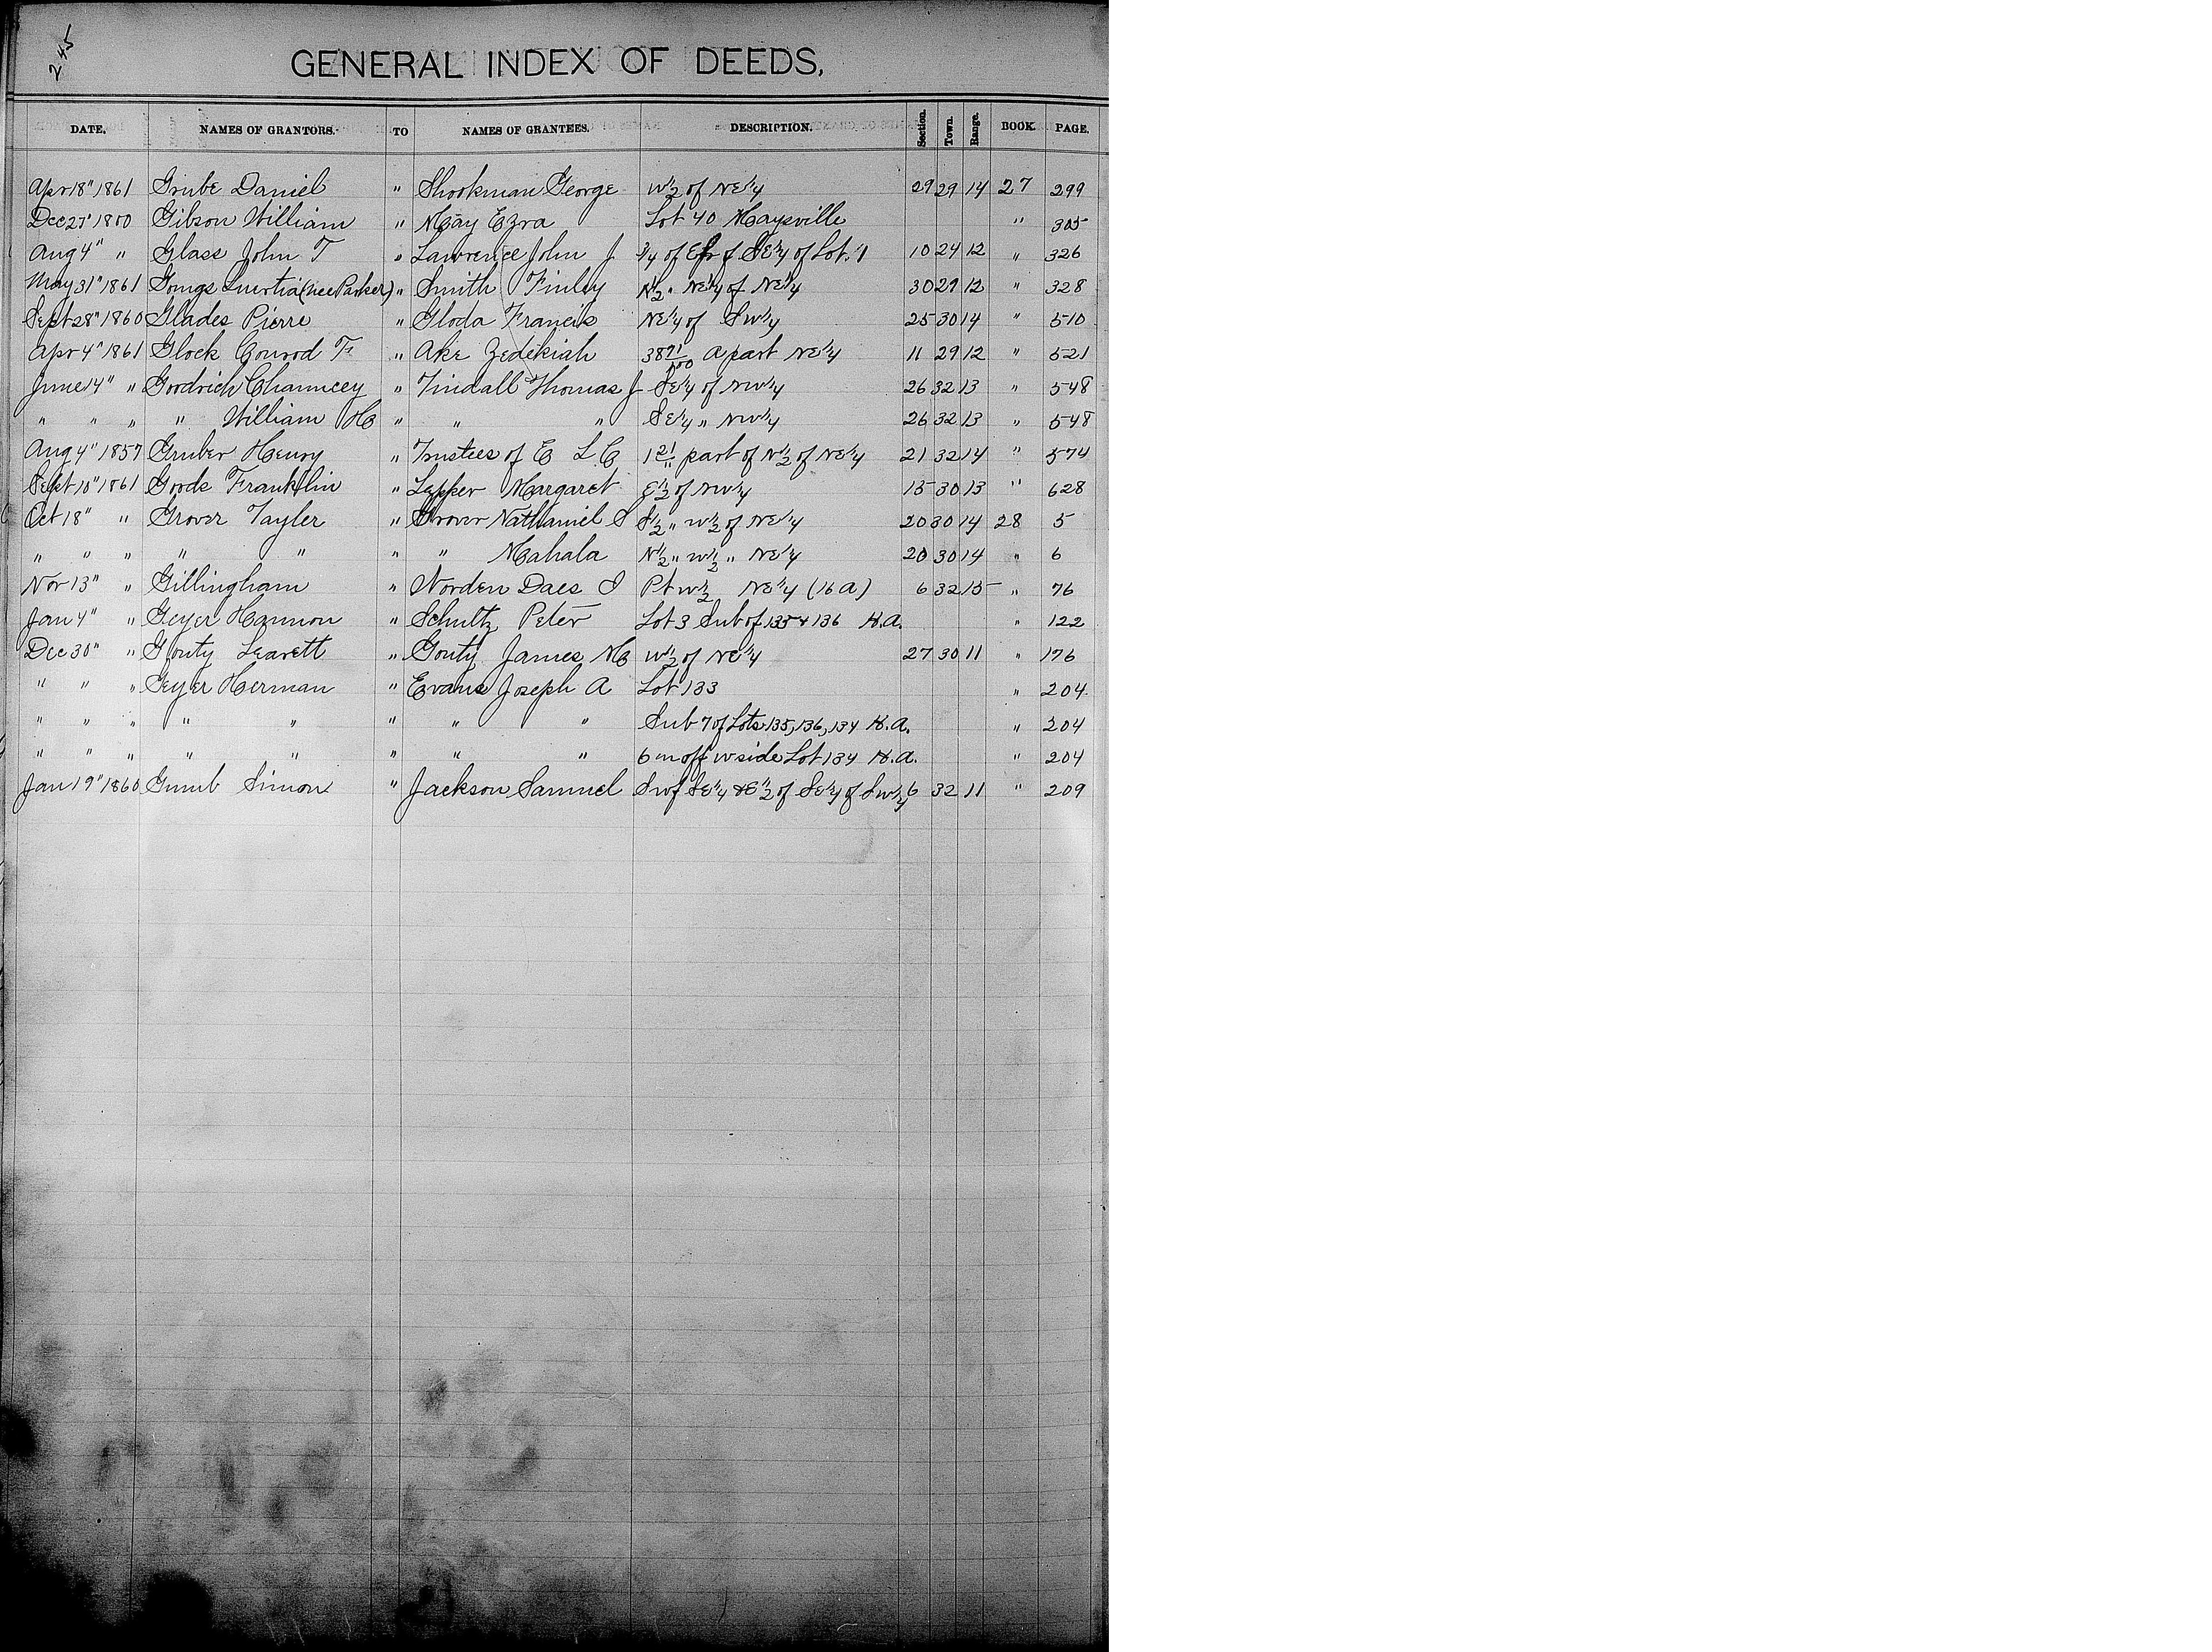 245
GENERAL INDEX OF DEEDS.
DATE. NAMES OF GRANTORS. TO NAMES OF GRANTEES. DESCRIPTION. Section. Town. Range. BOOK. PAGE.
Apr 18" 1861 Grube Daniel " Shookman George W 1/2 of NE 1/4 29 29 14 27 299
Dec 25" 1860 Gibson William " May Ezra Lot 40 Maysville " 305
Aug 4" " Glass John T " Lawrence John J 3/4 of of SE 1/4 of Lot 1 10 29 12 " 326
May 31" 1861 Goings (nee Parker) " Smith Finley N 1/2 " NE 1/4 of NE 1/4 30 29 12 " 328
Sept 28" 1860 Glades Pierre " Gloda Francis NE 1/4 of SW 1/4 25 30 14 " 510
Apr 4" 1861 Glock Conrod F " Ake Zedekiah 38 71/100 a part NE 1/4 11 29 12 " 521
June 14" " Goodrich Chauncey " Tindall Thomas J SE 1/4 of NW 1/4 26 32 13 " 548
" " " " William H " " " SE 1/4 " NW 1/4 26 32 13 " 548
Aug 4" 1857 Gruber Henry " Trustees of E L C 1 21/ part of N 1/2 of NE 1/4 21 32 14 " 574
Sept 10" 1861 Goode Franklin " Lepper Margaret E 1/2 of NW 1/4 15 30 13 " 628
Oct 18" " Grover Tayler " Grover Nathaniel S S 1/2 " W 1/2 of NE 1/4 20 30 14 28 5
" " " " " " " Mahala N 1/2 " W 1/2 " NE 1/4 20 30 14 " 6
Nov 13" " Gillingham " Norden Daes I Pt W 1/2 NE 1/4 (16 a) 6 32 15 " 76
Jan 4" " Geyer Hannon " Schultz Peter Lot 3 Sub of 135 & 136 H.a. " 122
Dec 30" " Gouty Leavett " Gouty James M W 1/2 of NE 1/4 27 30 11 " 176
" " " Geyer Herman " Evans Joseph A Lot 133 " 204
" " " " " " " " Sub 7 of Lots 135, 136, 134 H.a. " 204
" " " " " " " " 6 in off W side Lot 134 H.a. " 204
Jan 19" 1860 Gumb Simon " Jackson Samuel Swf SE 1/4 & E 1/2 of SE 1/4 of SW 1/4 6 32 11 " 209